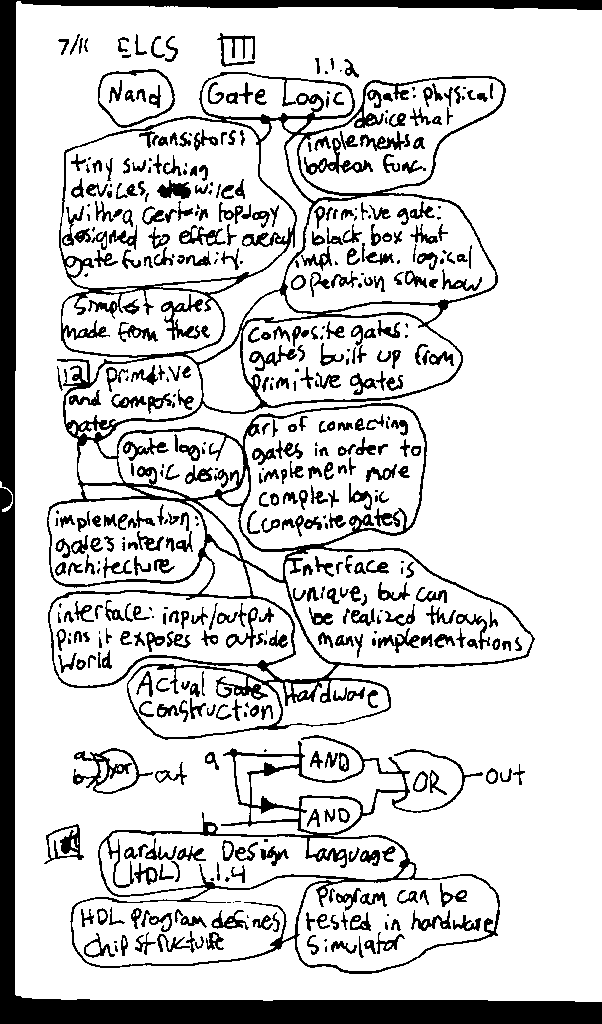 7/11 ELCS 11
1.1.2
Nand
Gate Logic
gate: physical
device that
implements a
boolean func.
Transistors:
tiny switching
devices, wired
with a certain topology
designed to effect overall
gate functionality.
primitive gate:
black box that
impl. elem. logical
operation somehow
Simplest gates
made from these
composite gates:
gates built up from
primitive gates
12
primitive
and composite
gates
gate logic/
logic design
art of connecting
gates in order to
implement more
complex logic
(composite gates)
implementation:
gate's internal
architecture
Interface is
unique, but can
be realized through
many implementations
interface: input/output
pins it exposes to outside
world
Actual Gate
Construction
Hardware
a
b
Xor
out
a
b
AND
AND
OR
out
Hardware Design Language
(HDL) 1.1.4
HDL program defines
chip structure
Program can be
tested in hardware
simulator